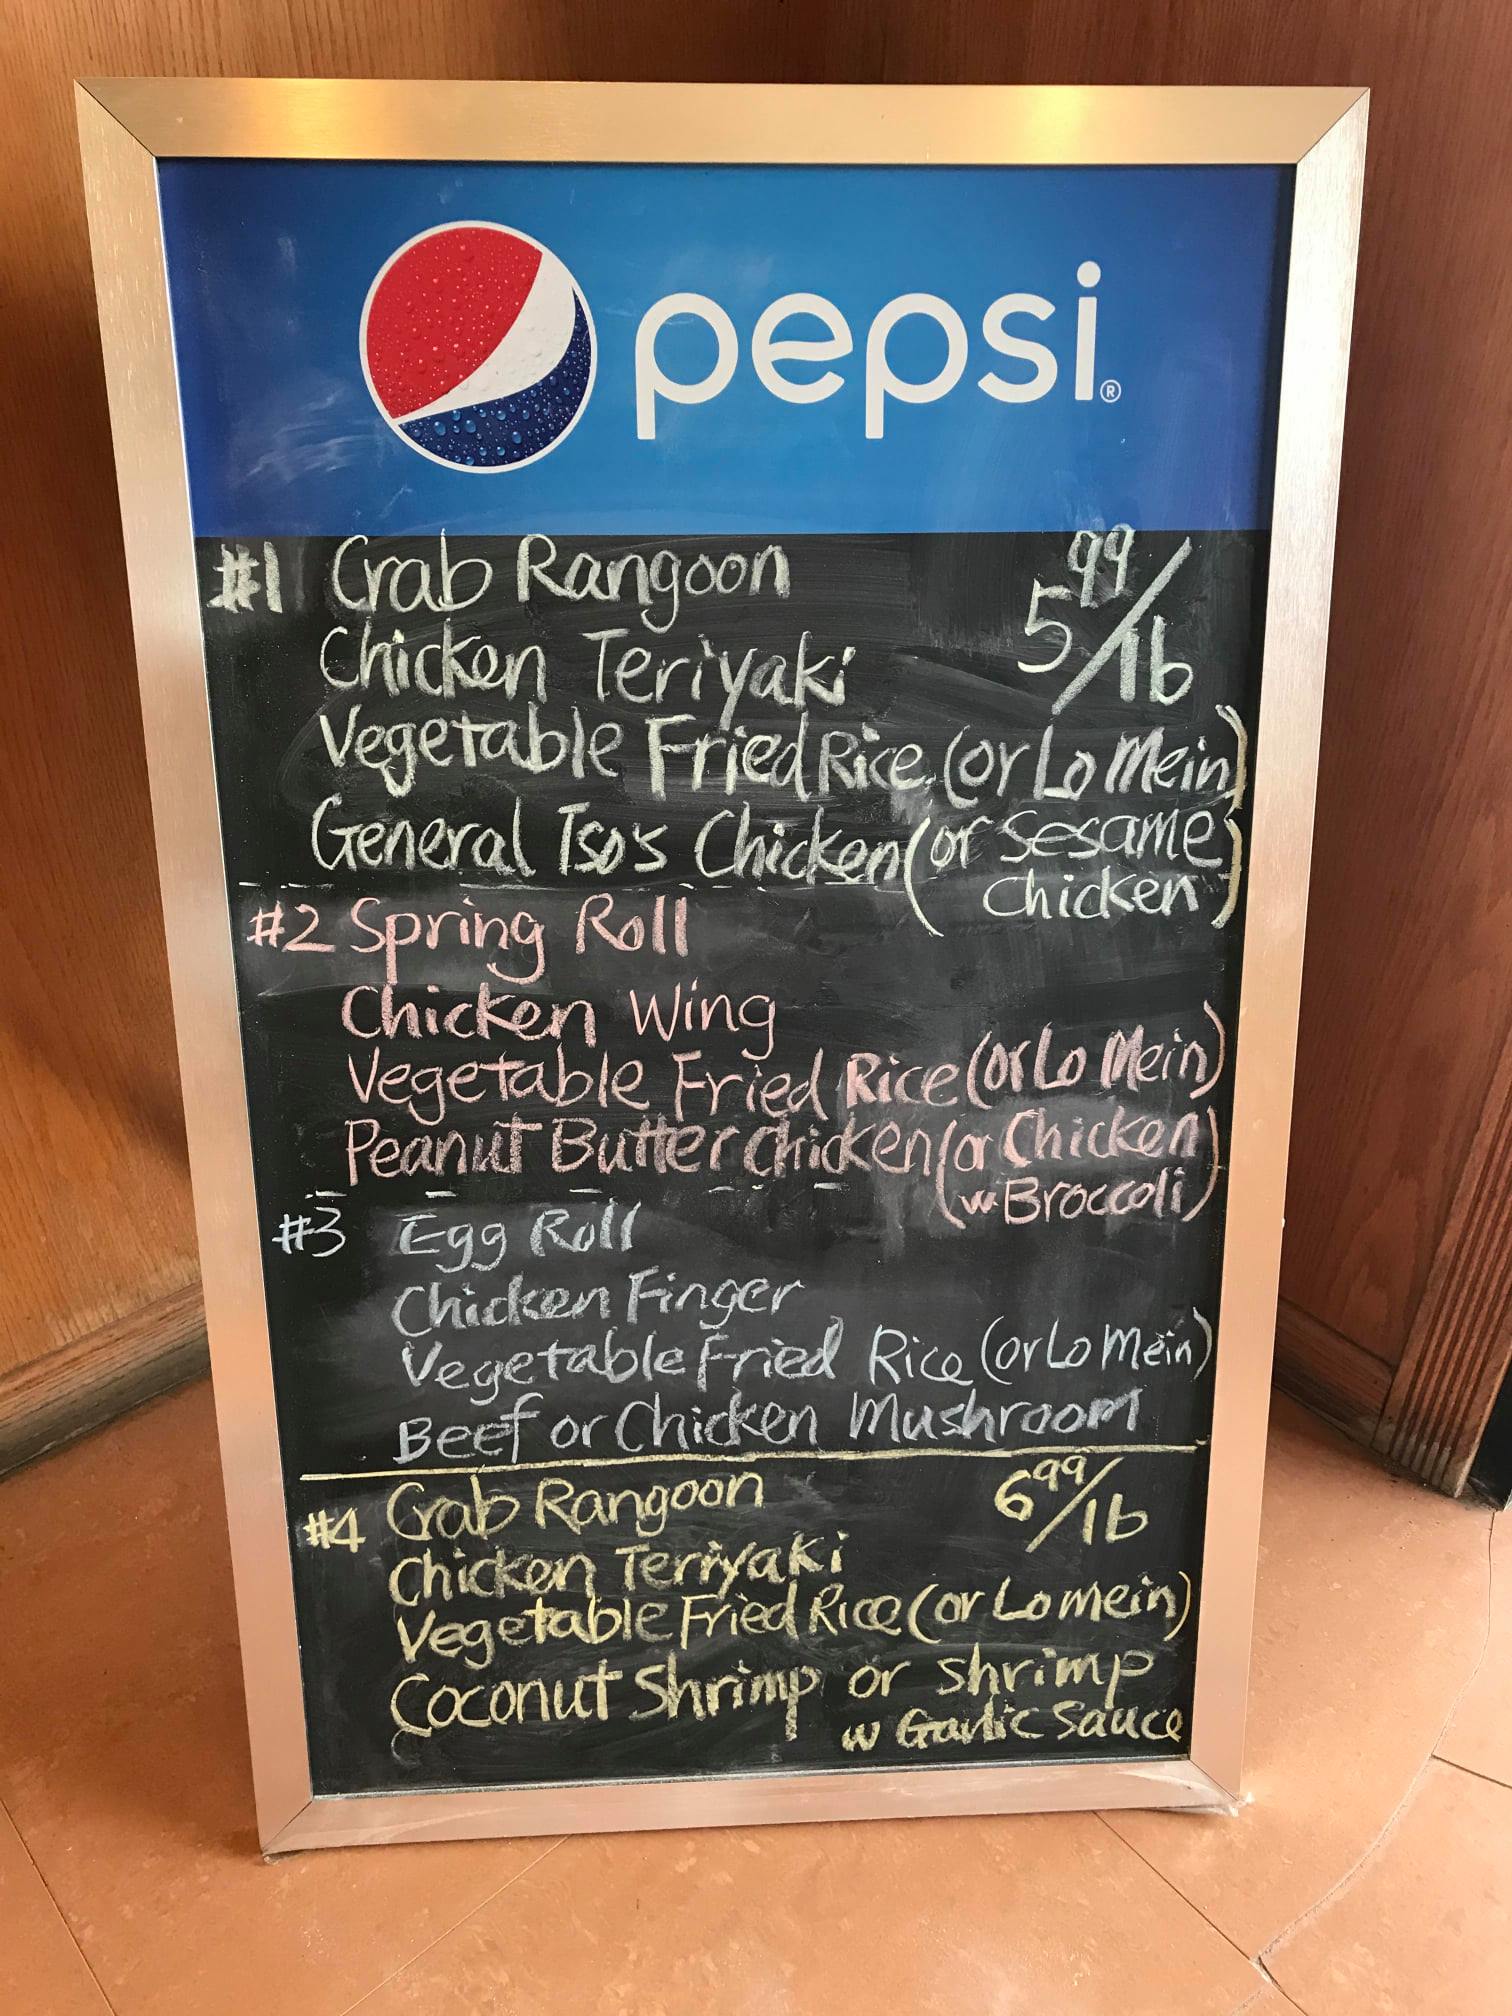 pepsi®
#1 Crab Rangoon 5 99/lb
Chicken Teriyaki
Vegetable Fried Rice (or Lo Mein)
General Tso's Chicken (or Sesame
Chicken)
#2 Spring Roll
Chicken Wing
Vegetable Fried Rice (or Lo Mein)
Peanut Butter chicken (or Chicken
w Broccoli)
#3 Egg Roll
Chicken Finger
Vegetable Fried Rice (or Lo Mein)
Beef or Chicken Mushroom
#4 Crab Rangoon 6 99/lb
Chicken Teriyaki
Vegetable Fried Rice (or Lo mein)
Coconut Shrimp or shrimp
w Garlic Sauce